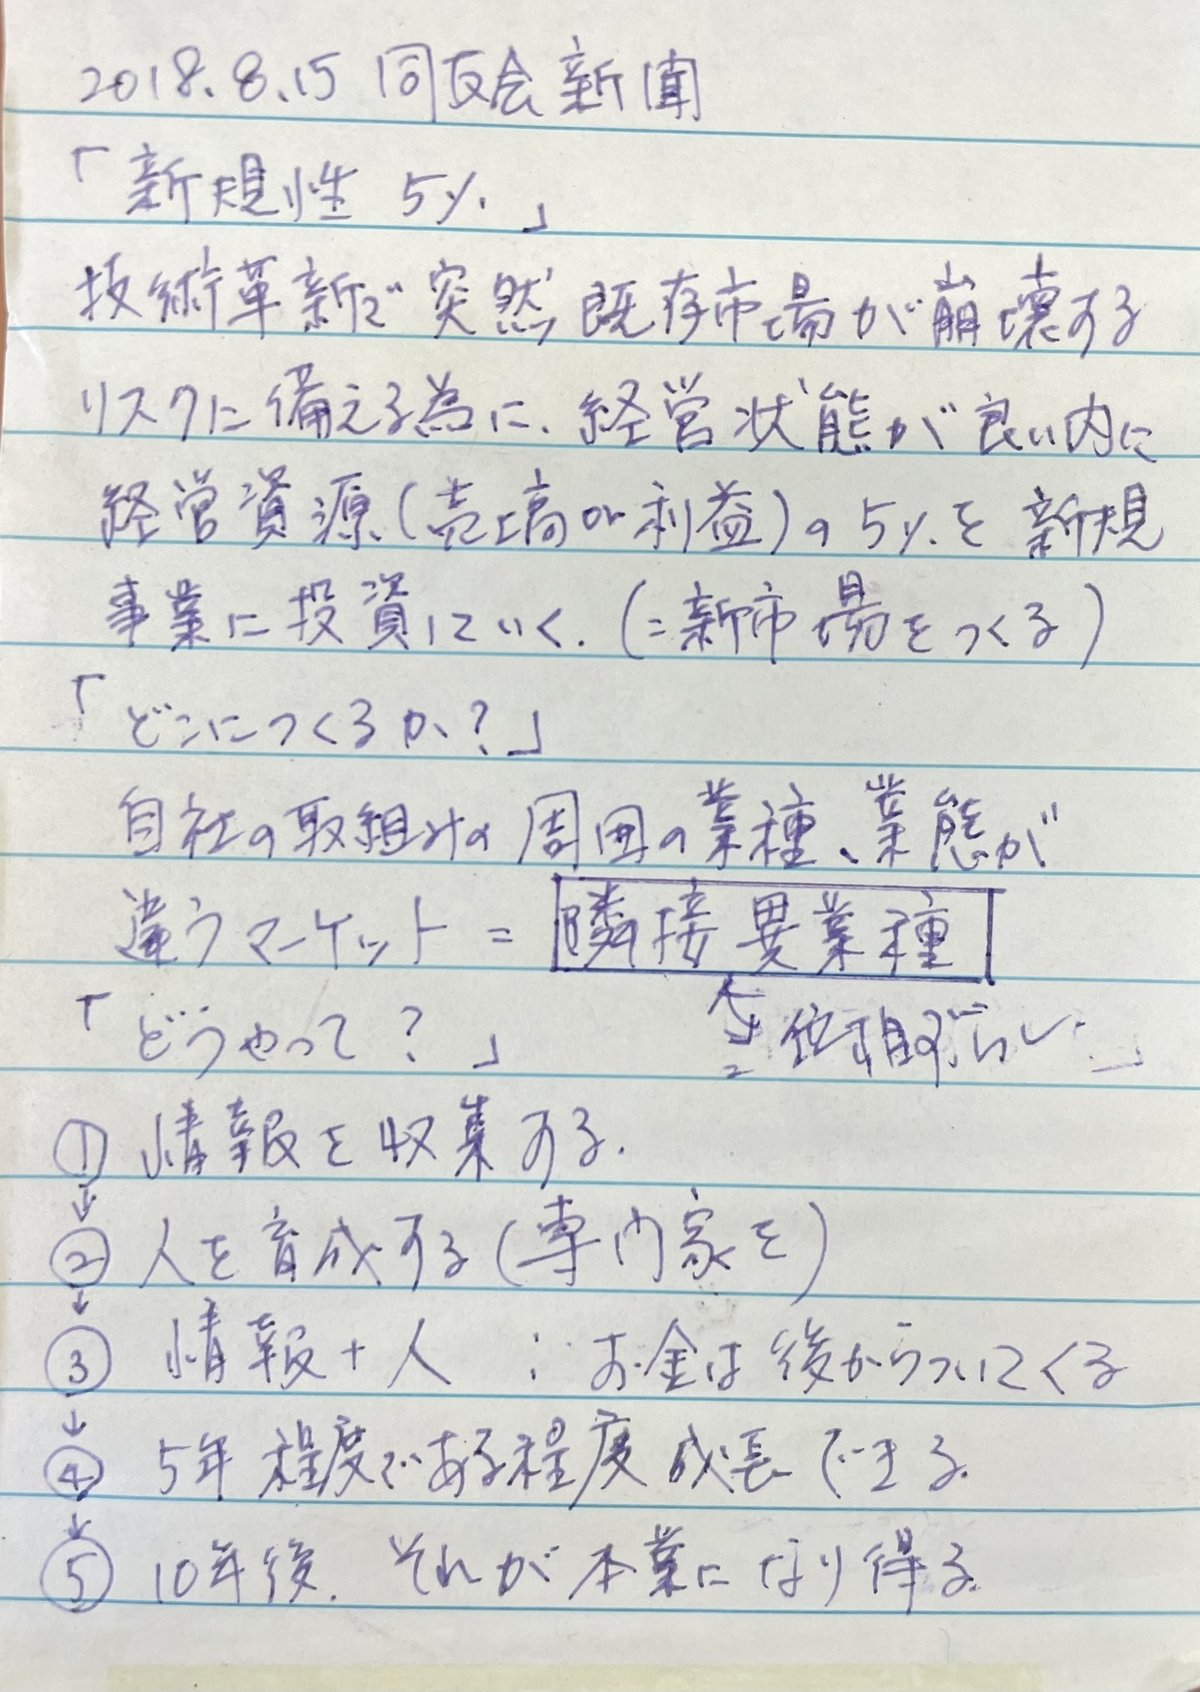 2018.8.15 同友会新聞
「新規性 5%」
技術革新で突然既存市場が崩壊する
リスクに備える為に、経営状態が良い内に
経営資源(売上高or利益)の5%を新規
事業に投資していく.(=新市場をつくる)
「どこにつくるか?」
自社の取組みの周囲の業種、業態が
違うマーケット = 隣接異業種
「どうやって?」 位相のずらし
① 情報を収集する.
↓
② 人を育成する(専門家を)
↓
③ 情報+人 : お金は後からついてくる
↓
④ 5年程度である程度成長できる.
↓
⑤ 10年後. それが本業になり得る.